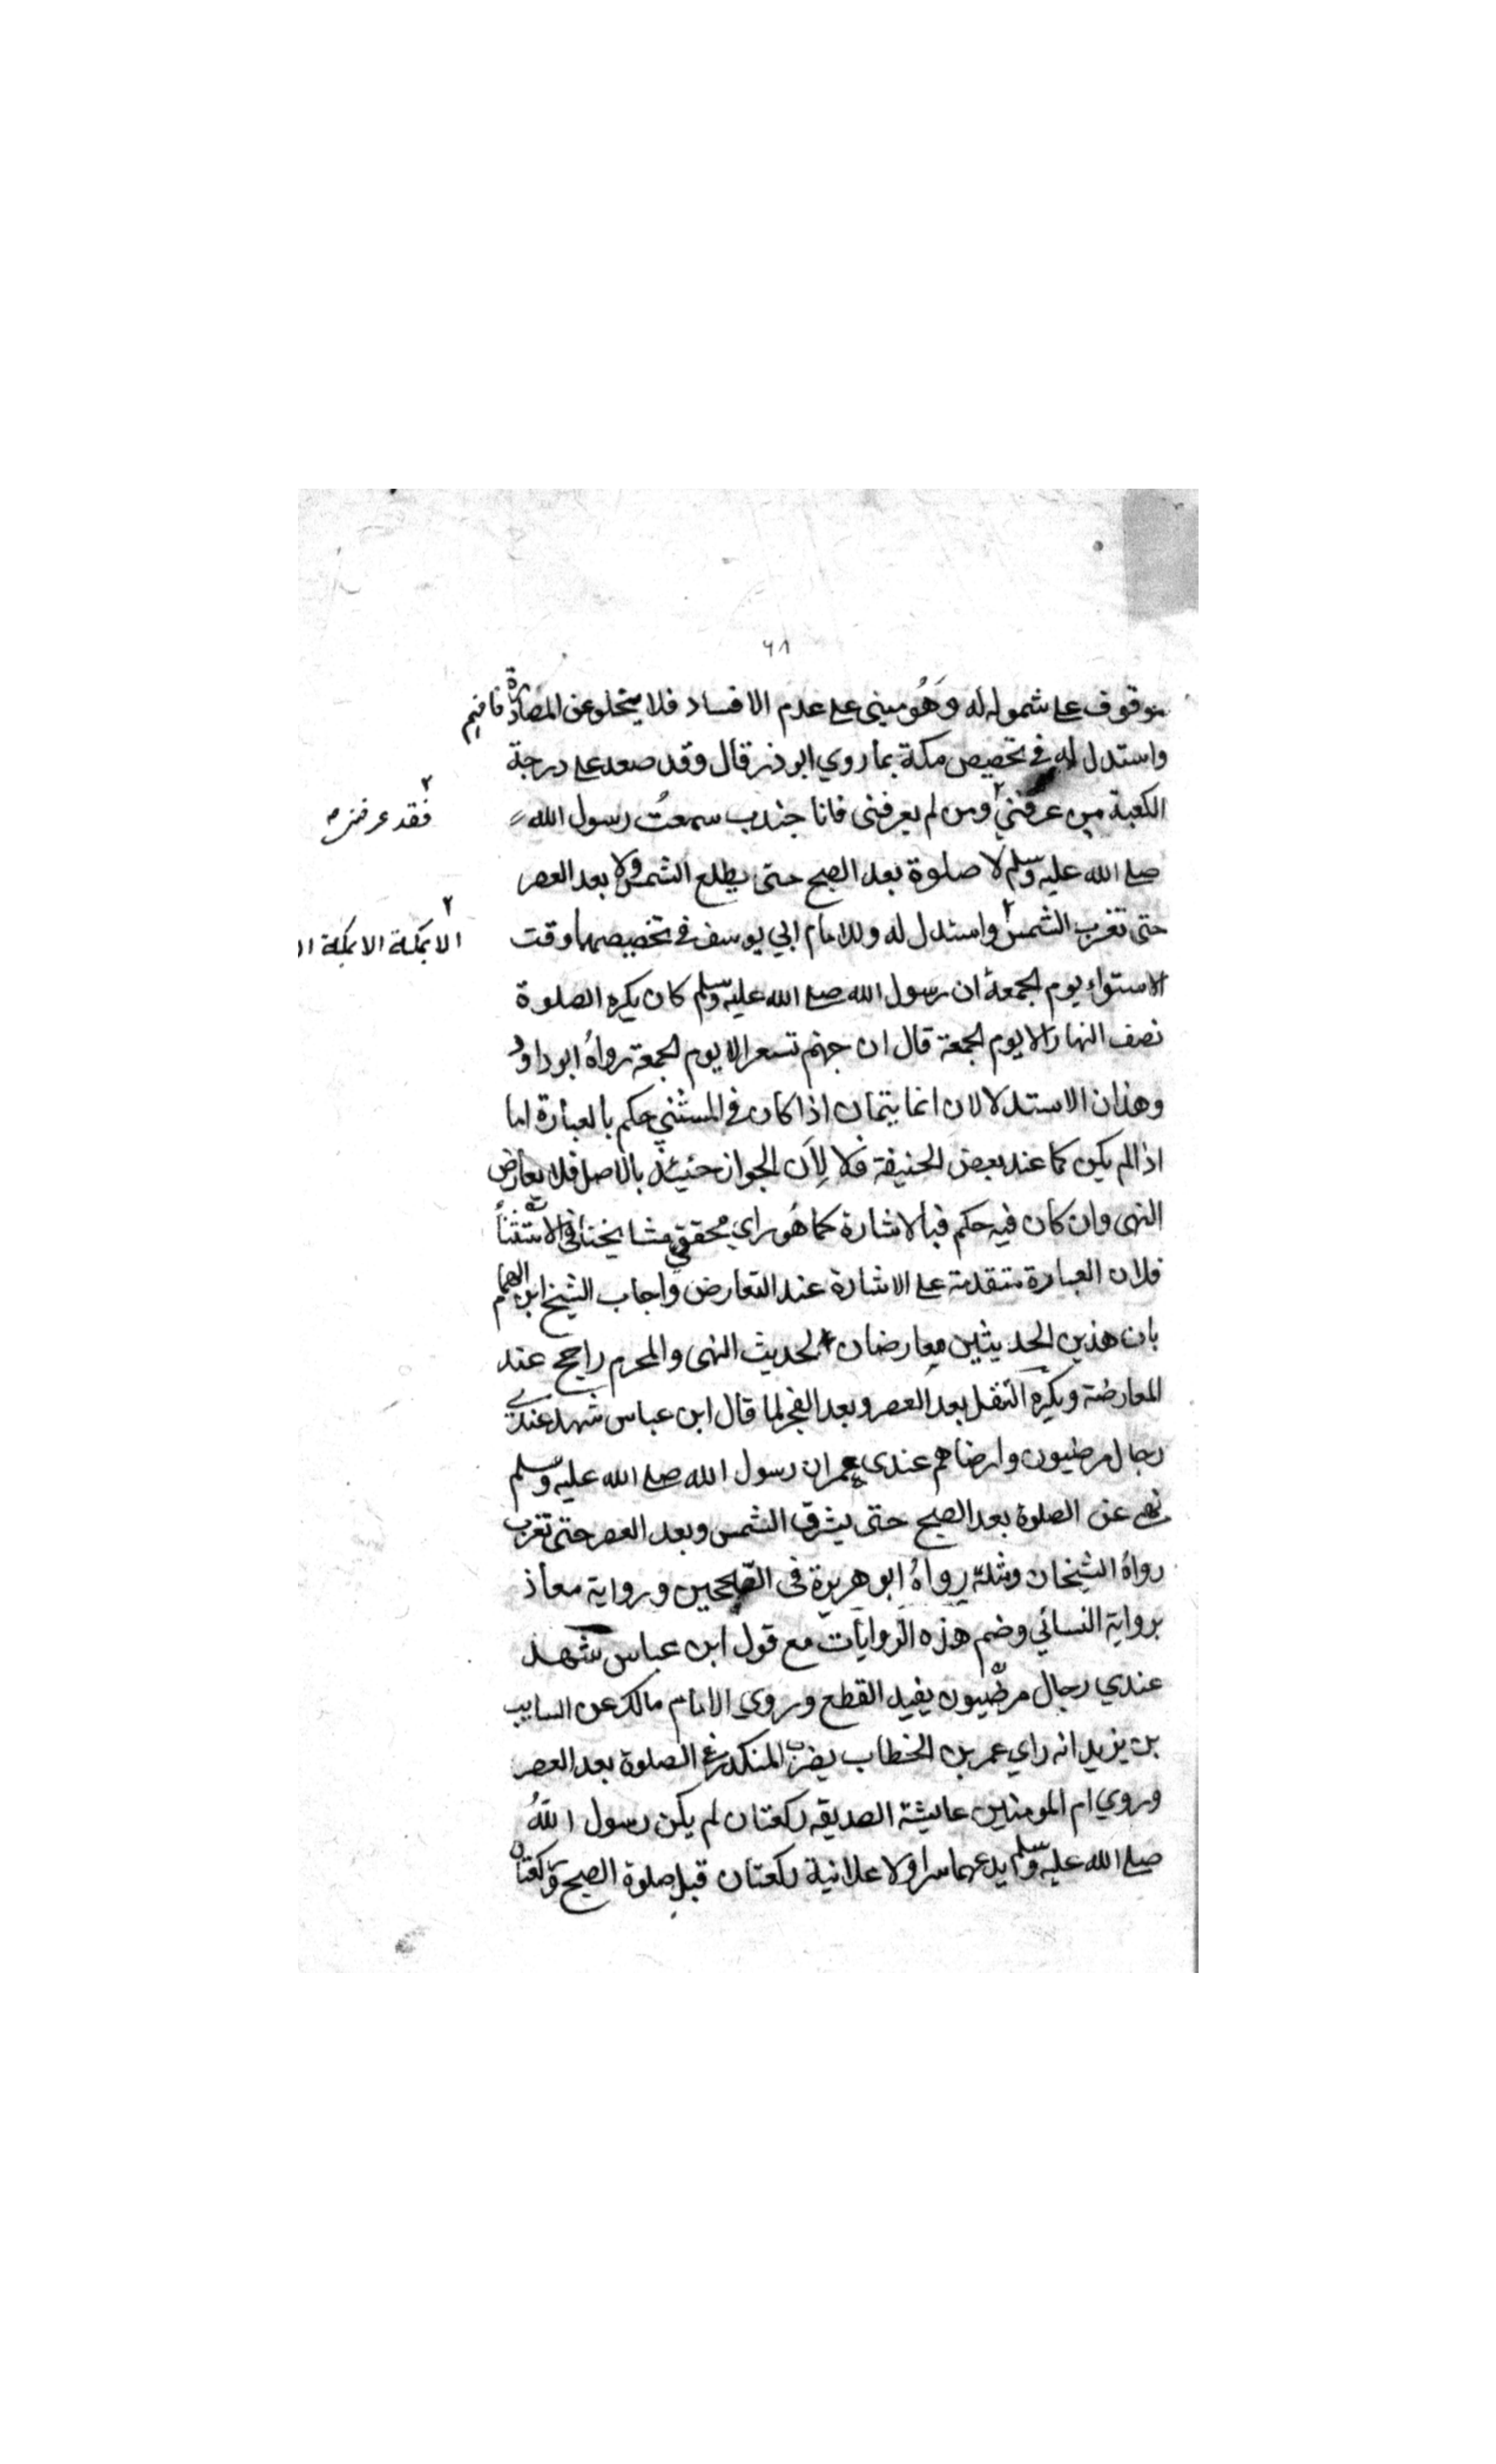 ٦٨
موقوف على شموله له وَهُو مبنى على عدم الافساد فلا يخلو عن المصادرة فافهم
واستدل له في تخصيص مكة بما روي ابو ذر قال وقد صعد على درجة
الكعبة من عرفني ٢ ومن لم يعرفنى فانا جندب سمعتُ رسول الله
٢ فقد عرفنى
صلى الله عليه وسلم لا صلوة بعد الصبح حتى يطلع الشمس ولا بعد العصر
حتى تغرب الشمس ٢ واستدل له وللامام ابي يوسف في تخصيصهما وقت
٢ الا بمكة الا بمكة
الاستواء يوم الجمعة ان رسول الله صلى الله عليه وسلم كان يكره الصلوة
نصف النهار الا يوم الجمعة قال ان جهنم تسعر الا يوم الجمعة رواهُ ابو داود
وهذان الاستدلالان انما يتمان اذا كان في المستثني حكم بالعبارة اما
اذا لم يكن كما عند بعض الحنيفة فلا لِاَن الجواز حينئذ بالاصل فلا يعارض
النهى وان كان فيه حكم فبالاشارة كما هُو راي محققي مشايخنا في الاستثناً
فلان العبارة متقدمة على الاشارة عند التعارض واجاب الشيخ ابن الهمام
بان هذين الحديثين معارضان لحديث النهى والمحرم راجح عند
المعارضة ويكره التنفل بعد العصر وبعد الفجر لما قال ابن عباس شهد عندي
رجال مرضيون وارضاهم عندى عمر ان رسول الله صلى الله عليه وسلم
نهى عن الصلوة بعد الصبح حتى يشرق الشمس وبعد العصر حتى تغرب
رواهُ الشيخان ومثله رواهُ ابو هريرة فى الصحيحين ورواية معاذ
برواية النسائي وضم هذه الروايات مع قول ابن عباس شهد
عندي رجال مرضيون يفيد القطع وروى الامام مالك عن السايب
بن يزيد انه راي عمر بن الخطاب يضرب المنكدر في الصلوة بعد العصر
وروي ام المومنين عايشة الصديقه ركعتان لم يكن رسول اللهُ
صلى الله عليه وسلم يدعهما سرا ولا علانية ركعتان قبل صلوة الصبح وركعتان